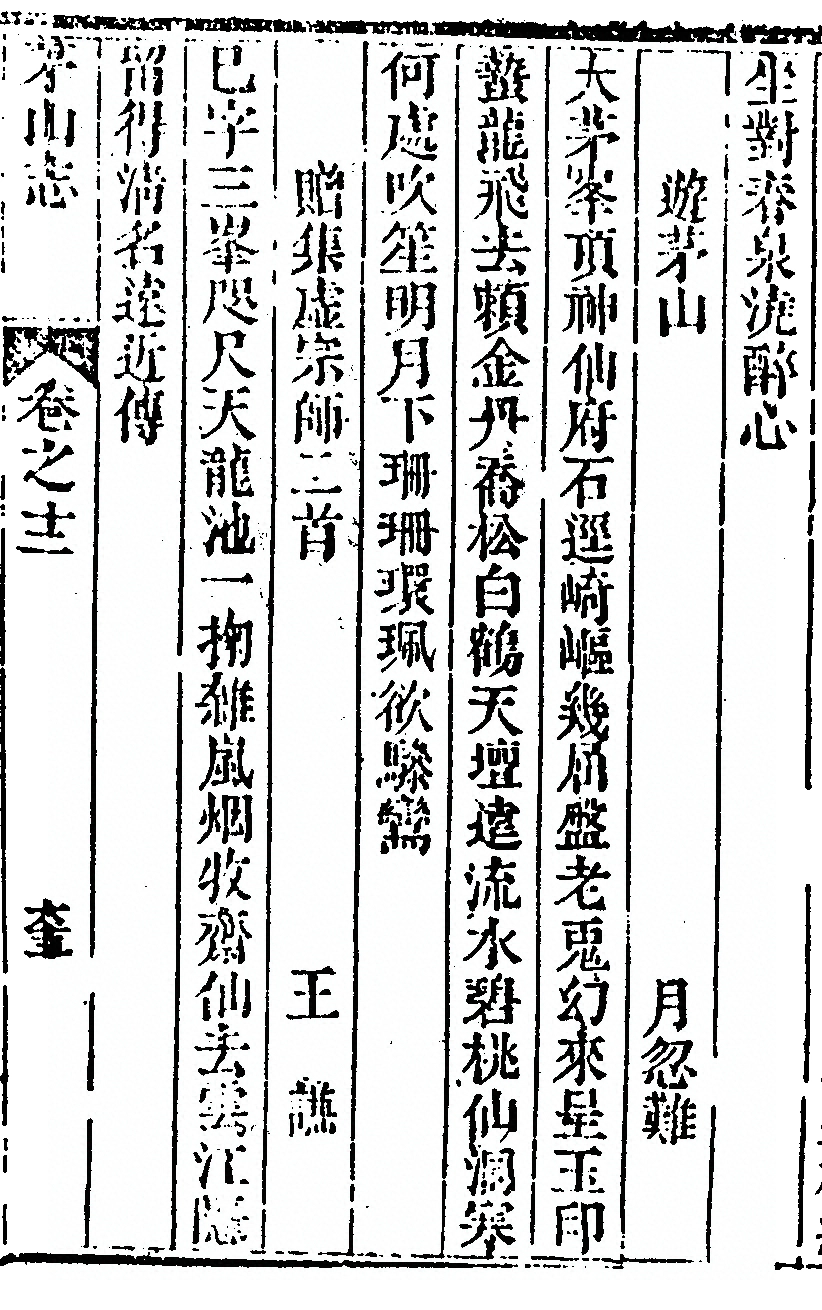 坐對春泉澆醉心
遊茅山 月忽難
大茅峯頂神仙府石逕崎嶇幾屈盤老兎幻來呈玉印
蟄龍飛去賴金丹喬松白鶴天壇遠流水碧桃仙洞寒
何處吹笙明月下珊珊瓊珮欲驂鸞
贈集虚宗師二首 王譙
巳字三峯咫尺天龍池一掬雜嵐烟牧齋仙去雲江隱
留得淸名遠近傳
茅山志 卷之十二 奎